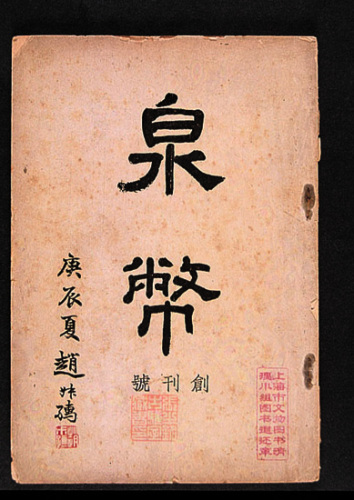 泉幣
創刊號
庚辰夏趙叔孺
上海市文物图书清
理小组图书退还章